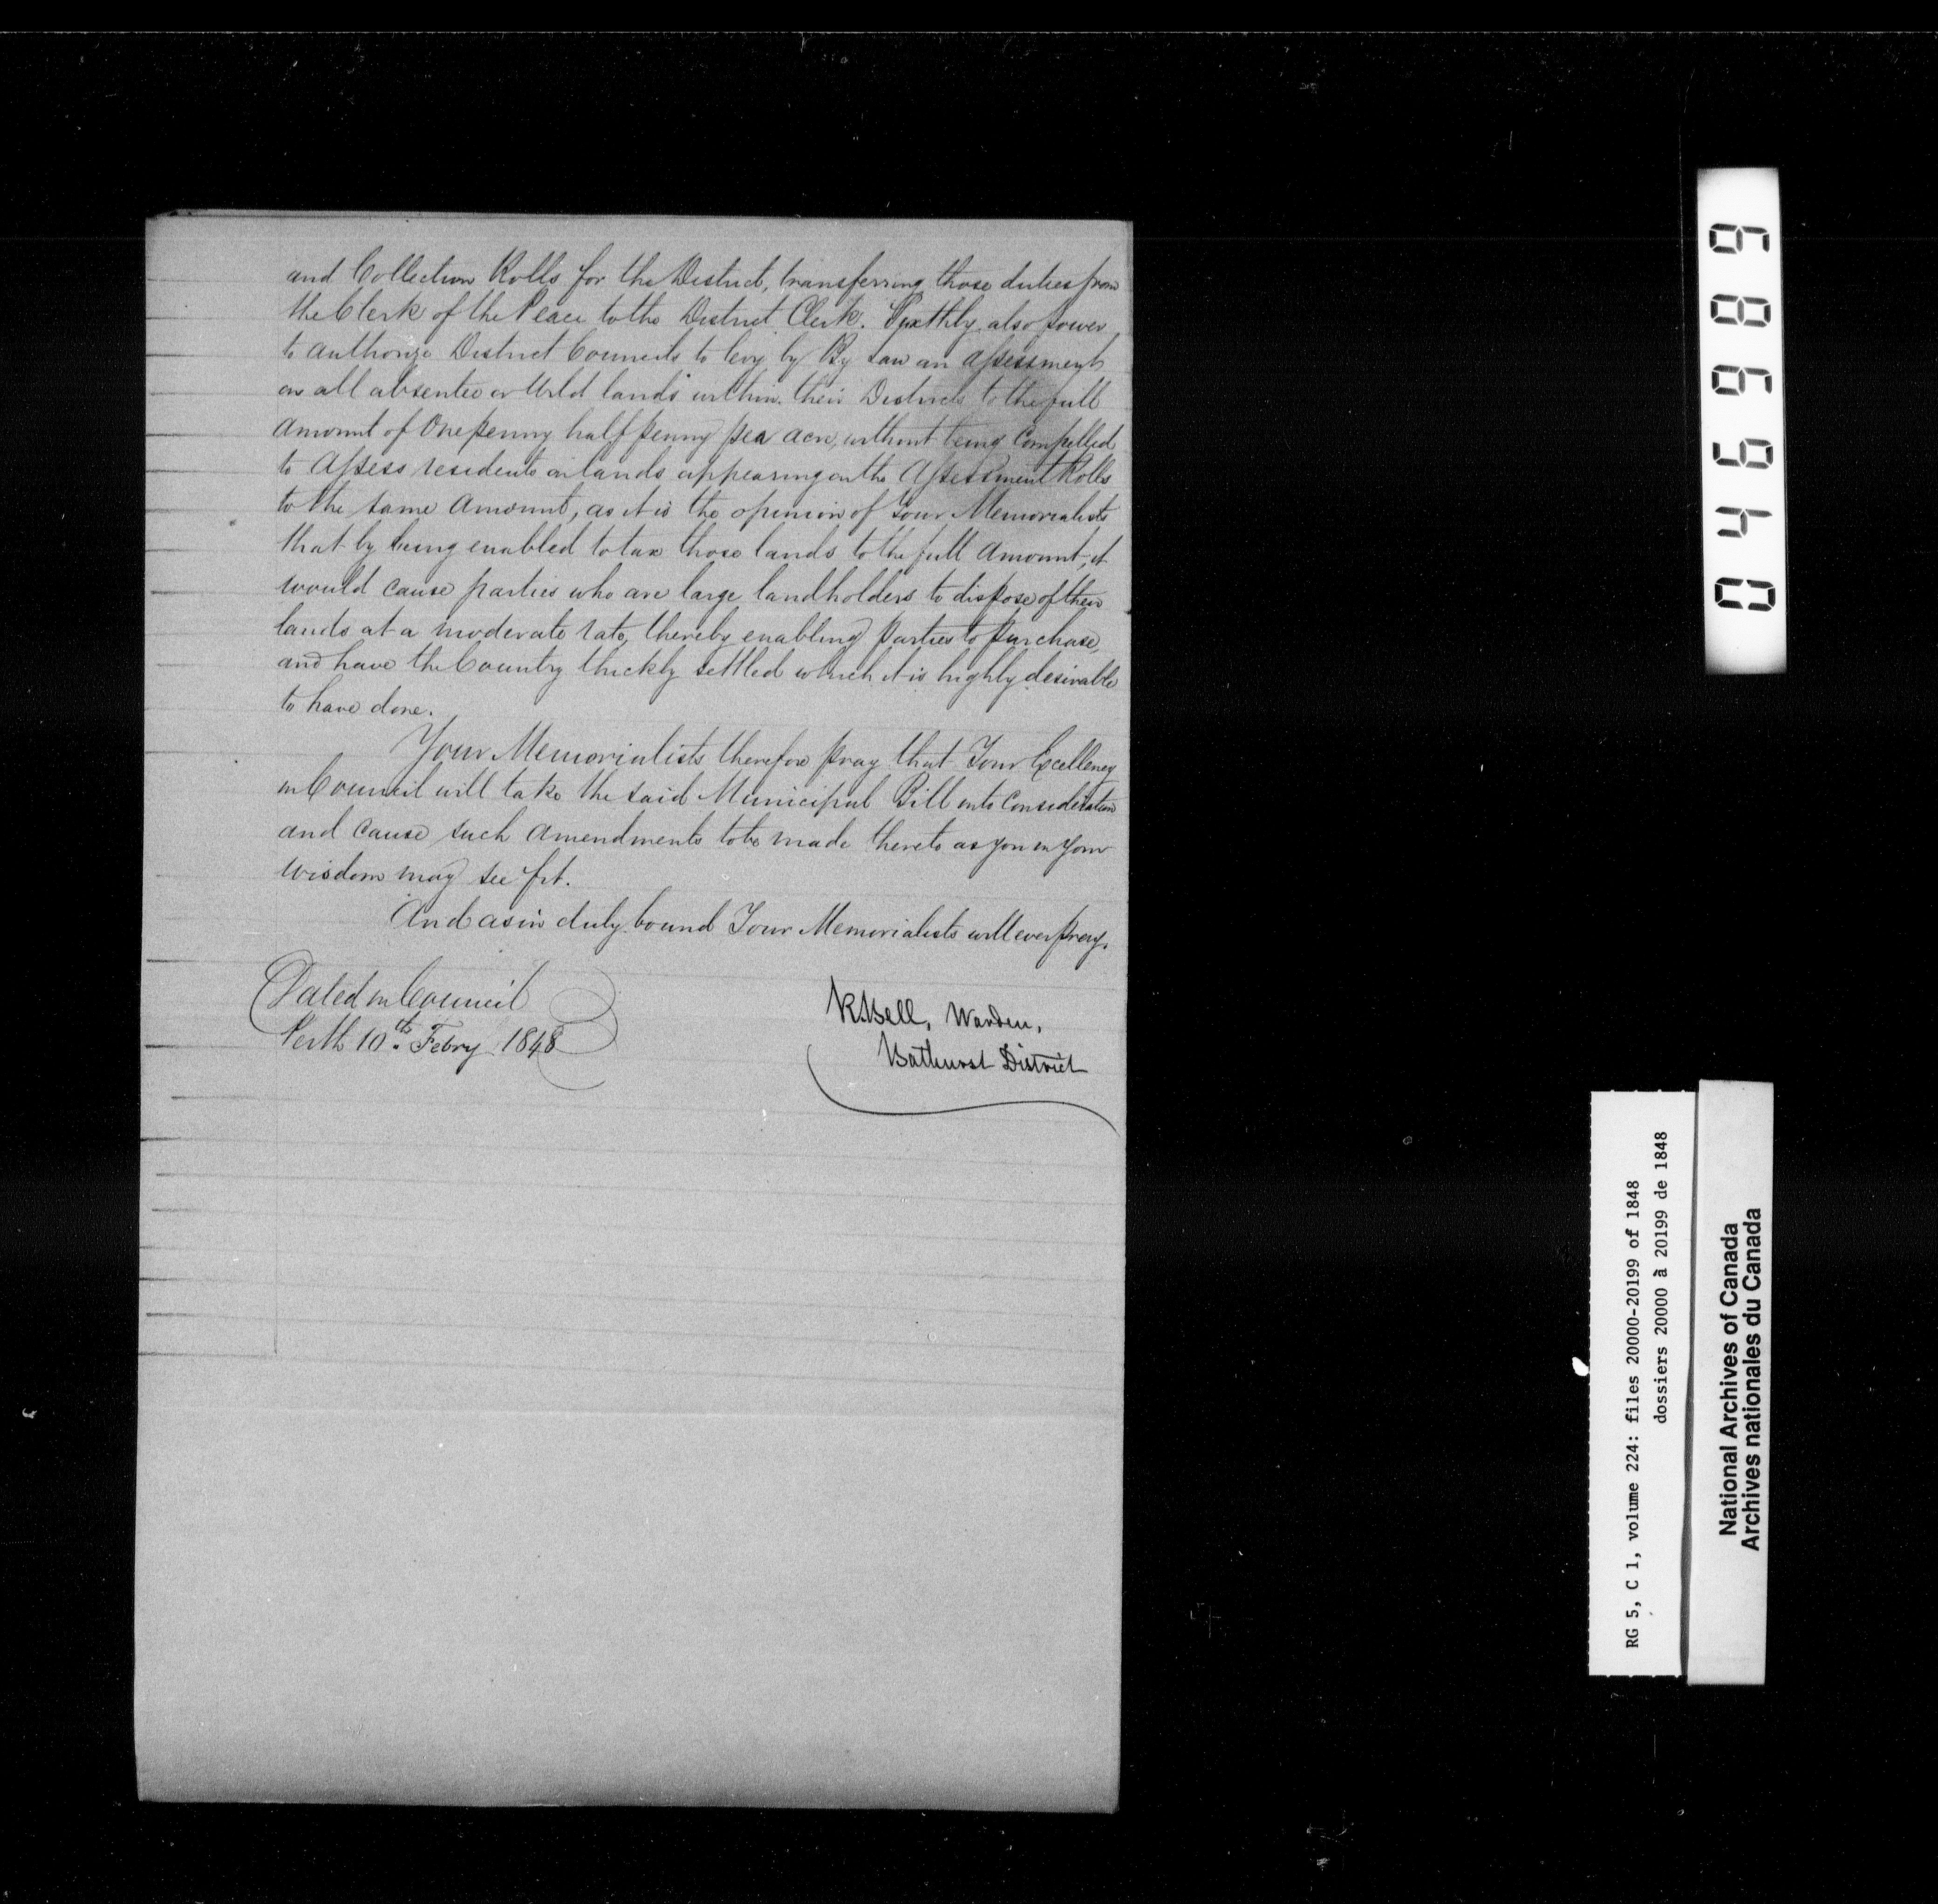 and Collection Rolls for the District, transferring those duties from
the Clerk of the Peace to the District Clerk. Sixthly, also power
to authorize District Councils to levy by By Law an assessment
on all absentee or Wild lands within their Districts to the full
amount of One penny half penny per acre, without being Compelled
to Assess residents on lands appearing on the Assessment Rolls
to the same Amount, as it is the opinion of Your Memorialists
that by being enabled to tax those lands to the full amount, it
would cause parties who are large landholders to dispose of their
lands at a moderate rate, thereby enabling parties to purchase,
and have the Country thickly settled which it is highly desirable
to have done.
Your Memorialists therefore pray that Your Excellency
in Council will take the said Municipal Bill into Consideration
and cause such amendments to be made thereto as you in your
wisdom may see fit.
And as in duly bound Your Memorialists will ever pray.
Dated in Council
Perth 10th Febry 1848
R Bell, Warden,
Bathurst District
046989
RG 5, C 1, volume 224: files 20000-20199 of 1848
dossiers 20000 à 20199 de 1848
National Archives of Canada
Archives nationales du Canada